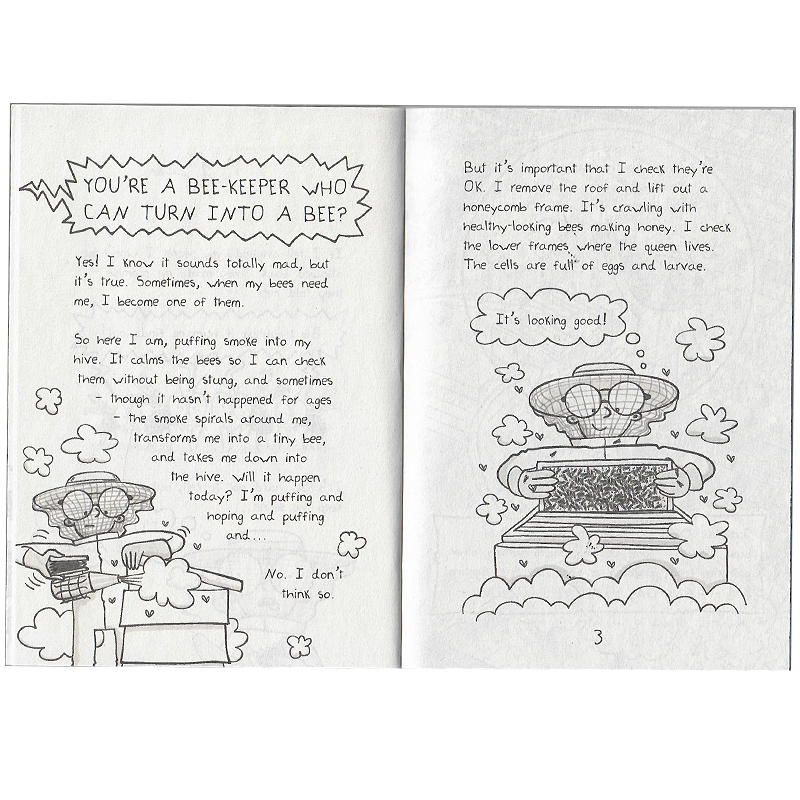 YOU'RE A BEE-KEEPER WHO
CAN TURN INTO A BEE?
Yes! I know it sounds totally mad, but
it's true. Sometimes, when my bees need
me, I become one of them.
So here I am, puffing smoke into my
hive. It calms the bees so I can check
them without being stung, and sometimes
- though it hasn't happened for ages
- the smoke spirals around me,
transforms me into a tiny bee,
and takes me down into
the hive. Will it happen
today? I'm puffing and
hoping and puffing
and...
No. I don't
think so.
But it's important that I check they're
OK. I remove the roof and lift out a
honeycomb frame. It's crawling with
healthy-looking bees making honey. I check
the lower frames where the queen lives.
The cells are full of eggs and larvae.
It's looking good!
3